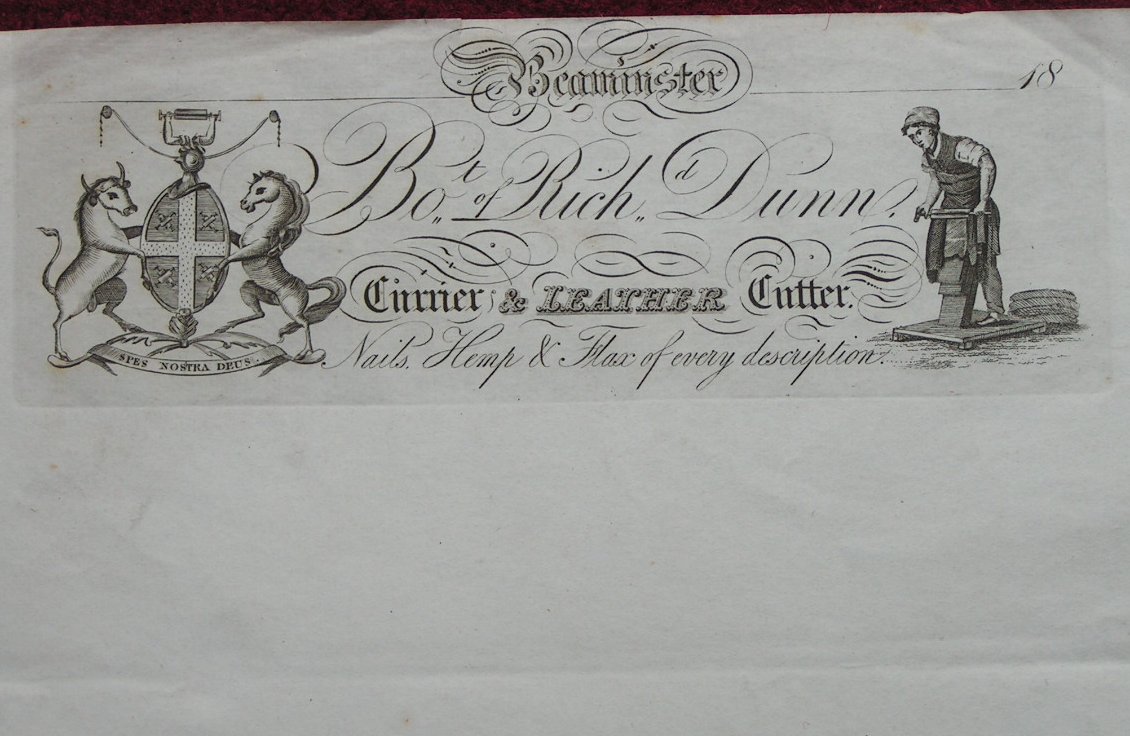 Beaminster 18
Bo,,t of Rich,,d Dunn.
Currier & LEATHER Cutter.
Nails, Hemp & Flax of every description.
SPES NOSTRA DEUS.